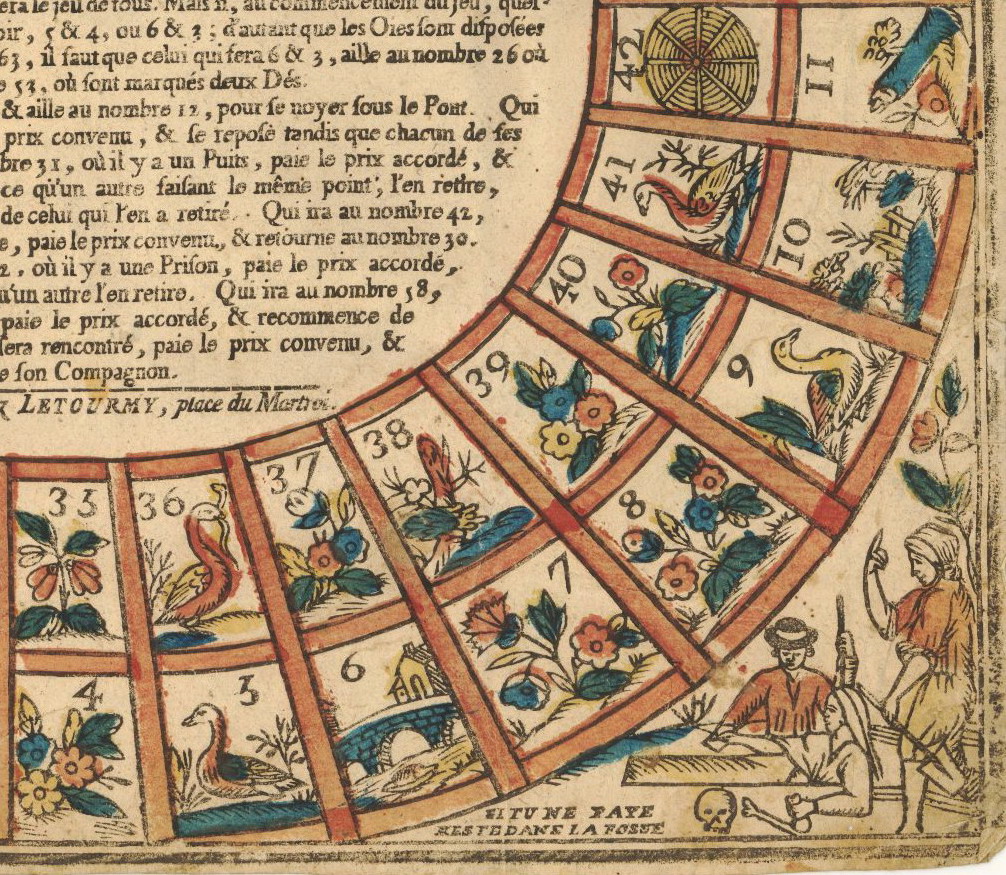 era le jeu de tous. Mais il, au commencement du jeu, quel-
oir, 5 & 4, ou 6 & 3 ; d'autant que les Oies sont disposées
63, il faut que celui qui fera 6 & 3, aille au nombre 26 où
53, où sont marqués deux Dés.
& aille au nombre 12, pour se noyer sous le Pont. Qui
prix convenu, & se repose tandis que chacun de ses
bre 31, où il y a un Puits, paie le prix accordé, &
ce qu'un autre faisant le même point, l'en retire,
de celui qui l'en a retiré. Qui ira au nombre 42,
e, paie le prix convenu, & retourne au nombre 30.
2, où il y a une Prison, paie le prix accordé,
u'un autre l'en retire. Qui ira au nombre 58,
paie le prix accordé, & recommence de
sera rencontré, paie le prix convenu, &
e son Compagnon.
LETOURMY, place du Martroi.
42
11
41
10
40
9
39
8
38
7
37
6
36
5
35
4
SI TU NE PAYE
RESTE DANS LA FOSSE